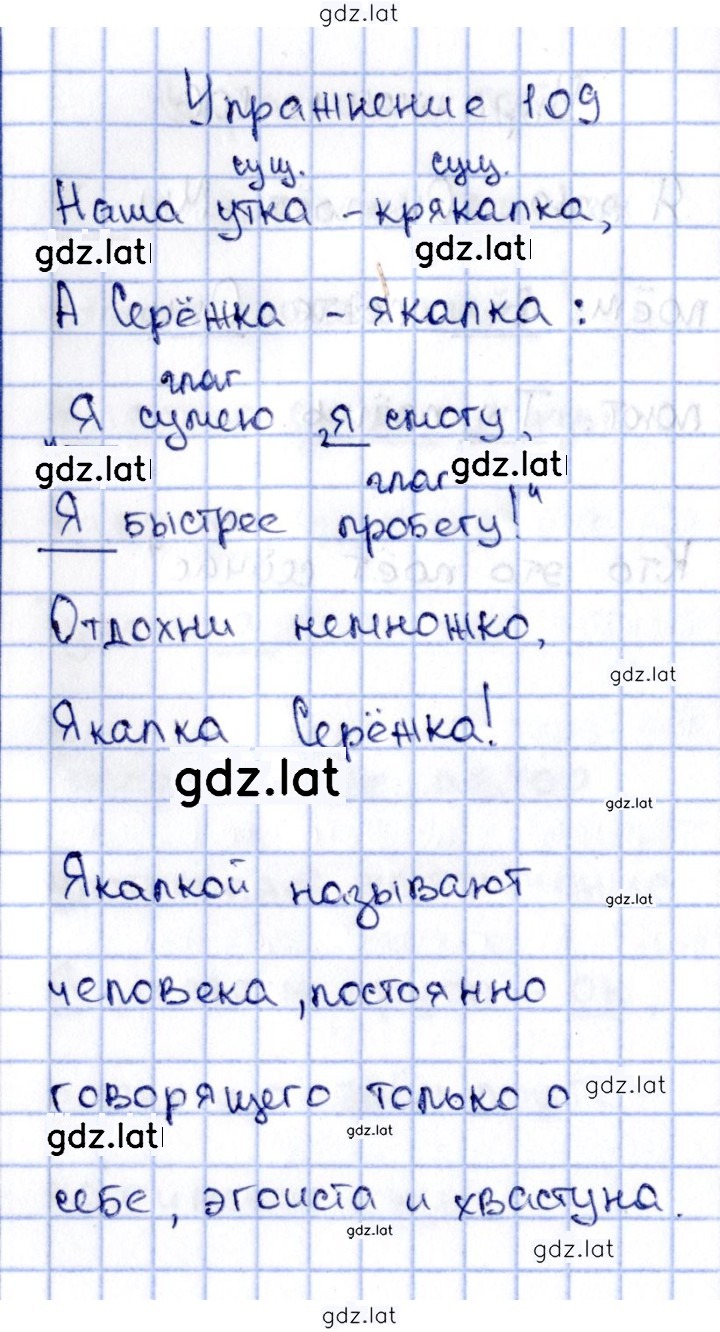 gdz.lat
Упражнение 109
сущ. сущ.
Наша утка - крякалка,
gdz.lat gdz.lat
А Серёжка - якалка:
глаг
„Я сумею, я смогу,
gdz.lat gdz.lat
глаг
Я быстрее пробегу!“
Отдохни немножко,
gdz.lat
Якалка Серёжка!
gdz.lat
gdz.lat
Якалкой называют
gdz.lat
человека, постоянно
говорящего только о
gdz.lat
gdz.lat gdz.lat
себе, эгоиста и хвастуна.
gdz.lat
gdz.lat
gdz.lat